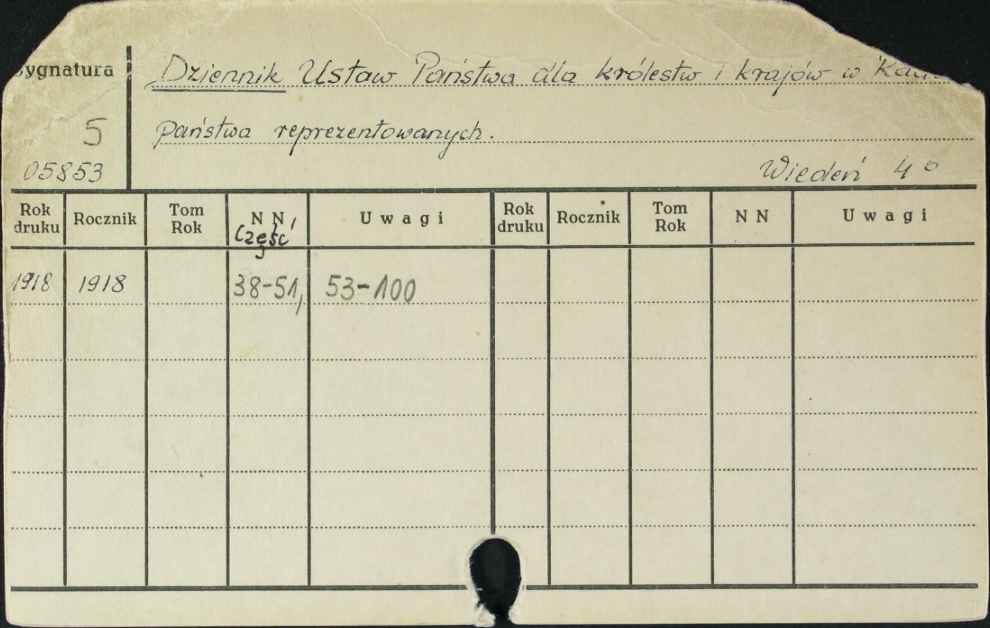 Sygnatura
Dziennik Ustaw Państwa dla królestw i krajów w
5
państwa reprezentowanych.
05853
Wiedeń 4°
Rok druku Rocznik Tom Rok NN, Część Uwagi Rok druku Rocznik Tom Rok NN Uwagi
1918 1918 38-51, 53-100